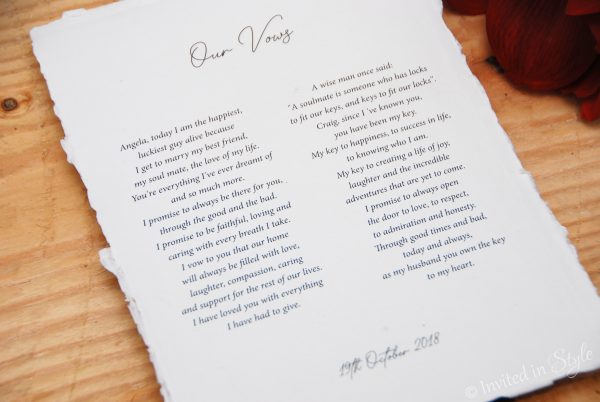 Our Vows
Angela, today I am the happiest,
luckiest guy alive because
I get to marry my best friend,
my soul mate, the love of my life.
You're everything I've ever dreamt of
and so much more.
I promise to always be there for you,
through the good and the bad.
I promise to be faithful, loving and
caring with every breath I take.
I vow to you that our home
will always be filled with love,
laughter, compassion, caring
and support for the rest of our lives.
I have loved you with everything
I have had to give.
A wise man once said:
"A soulmate is someone who has locks
to fit our keys, and keys to fit our locks".
Craig, since I´ve known you,
you have been my key.
My key to happiness, to success in life,
to knowing who I am.
My key to creating a life of joy,
laughter and the incredible
adventures that are yet to come.
I promise to always open
the door to love, to respect,
to admiration and honesty.
Through good times and bad,
today and always,
as my husband you own the key
to my heart.
19th October 2018
© Invited in Style